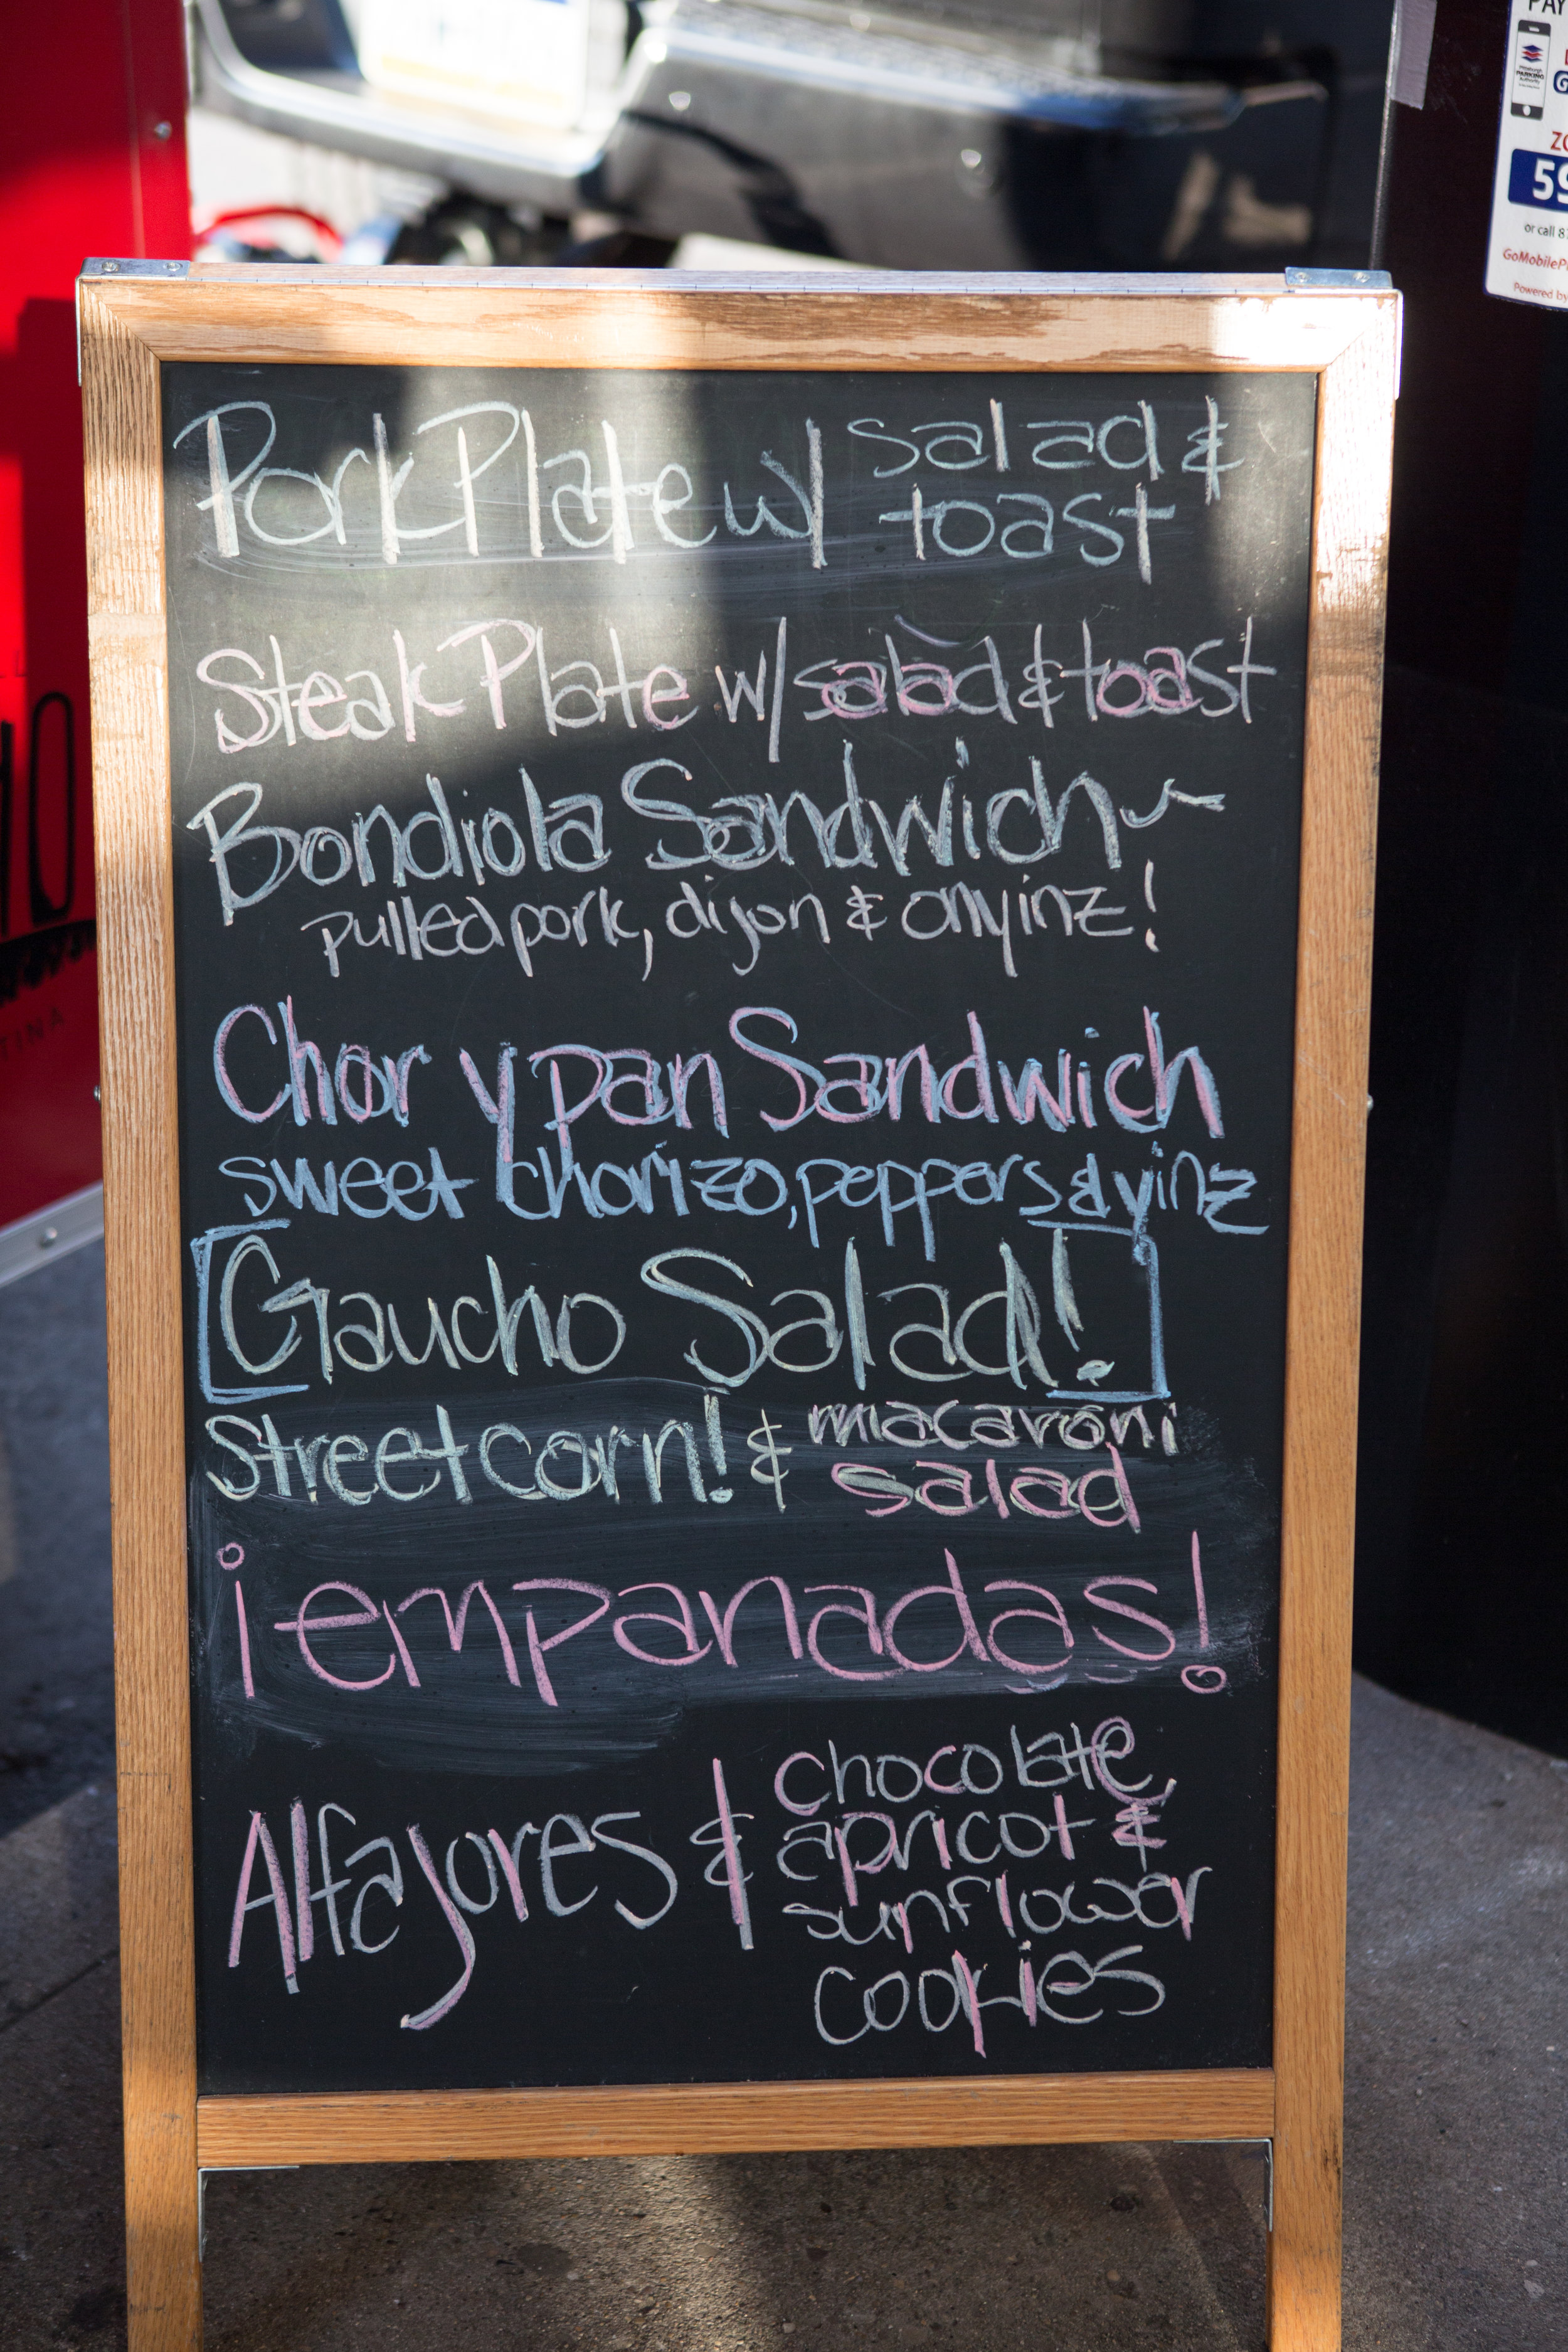 PAY
Pittsburgh
PARKING
Authority
59
or call 8
GoMobileP
Powered by
Pork Plate w/ salad &
toast
Steak Plate w/ salad & toast
Bondiola Sandwich ~
pulled pork, dijon & onyinz!
Chor y pan Sandwich
sweet chorizo, peppers & yinz
Gaucho Salad!
Street corn! & macaroni
salad
¡empanadas!
Alfajores & chocolate,
apricot &
sunflower
cookies
TINA